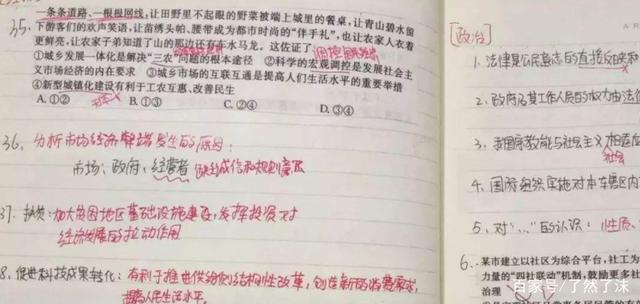 35.
一条条道路、一根根网线,让田野里不起眼的野菜被端上城里的餐桌,让青山碧水留
下游客们的欢声笑语,让苗绣头帕、腰带成为都市时尚的“伴手礼”,也让农家人衣着
更鲜亮,让农家子弟知道了山的那边还有车水马龙。这佐证了
①城乡发展一体化是解决“三农”问题的根本途径 ②科学的宏观调控是发展社会主
义市场经济的内在要求 ③城乡市场的互联互通是提高人们生活水平的重要举措
④新型城镇化建设有利于工农互惠、改善民生
A.①② B.①③ C.②④ D.③④
36、分析市场经济弊端发生的原因:
市场、政府、经营者 缺乏诚信和规则意识
37. 扶贫:加大贫困地区基础设施建设,发挥投资对
经济发展的拉动作用
8、促进科技成果转化:有利于推进供给侧结构性改革,创造新的消费需求,
提高人民生活水平。
[政治]
1、法律是公民意志的直接反映和
2、政府及其工作人员的权力由法
3、我国宗教能与社会主义相适应
社会
4、国际组织实施对本辖区内
5、对“…”的认识:性质、
6.
某市建立以社区为综合平台,社工为
力量的“四社联动”机制,鼓励更多社
治理
百家号/了然了沫